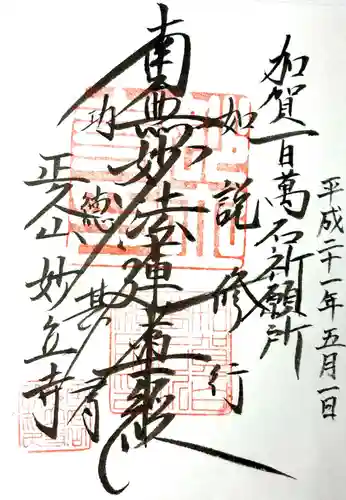 平成二十一年五月一日
加賀百万石祈願所
如説修行
南無妙法蓮華経
功徳甚多
正久山妙立寺